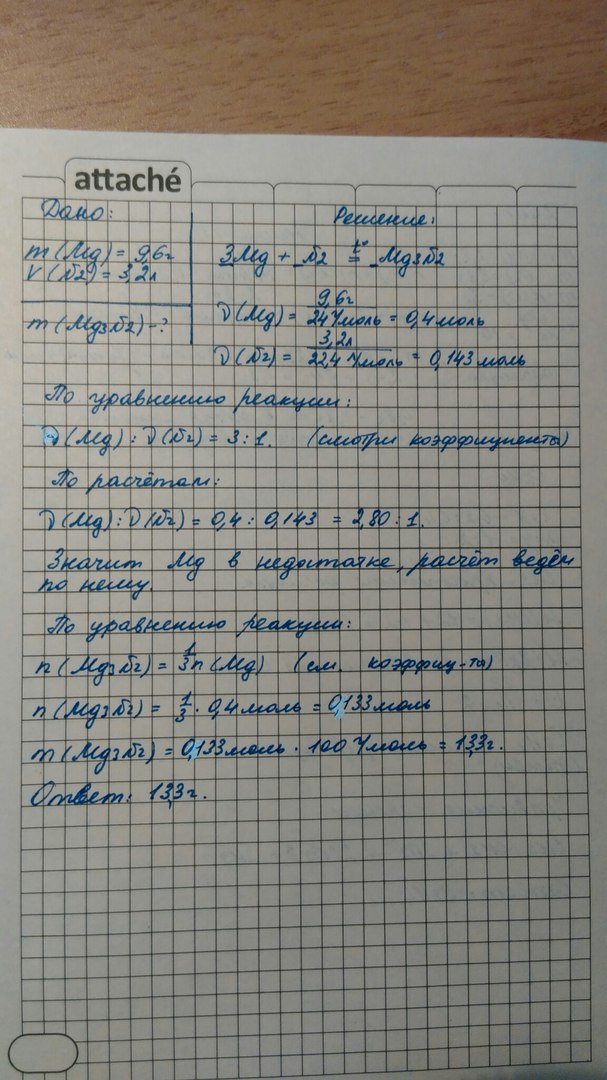 attaché
Дано:
Решение:
m(Mg) = 9,6г
V(N2) = 3,2л
3Mg + N2 t°= Mg3N2
m(Mg3N2) - ?
ν(Mg) = 9,6г / 24 г/моль = 0,4 моль
ν(N2) = 3,2л / 22,4 г/моль = 0,143 моль
По уравнению реакции:
ν(Mg) : ν(N2) = 3 : 1. (смотри коэффициенты)
По расчётам:
ν(Mg) : ν(N2) = 0,4 : 0,143 = 2,80 : 1.
Значит Mg в недостатке, расчёт ведём
по нему.
По уравнению реакции:
n(Mg3N2) = 1/3 n(Mg) (см. коэффиц-ты)
n(Mg3N2) = 1/3 · 0,4 моль = 0,133 моль
m(Mg3N2) = 0,133 моль · 100 г/моль = 13,3г.
Ответ: 13,3г.